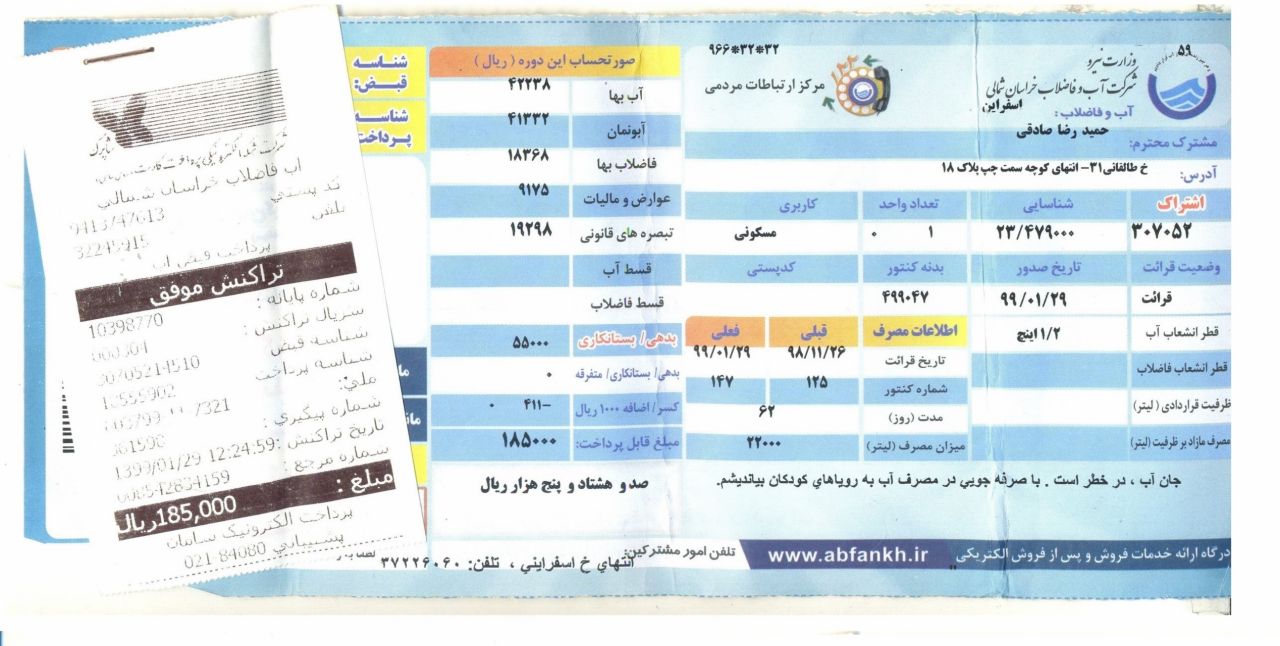 ۵۹
وزارت نیرو
شرکت آب و فاضلاب خراسان شمالی
آب و فاضلاب : اسفراین
۹۶۶*۳۲*۳۲
۱۲۲
مرکز ارتباطات مردمی
مشترک محترم: حمید رضا صادقی
آدرس: خ طالقانی۳۱- انتهای کوچه سمت چپ پلاک ۱۸
اشتراک شناسایی تعداد واحد کاربری
۳۰۷۰۵۲ ۲۳/۴۷۹۰۰۰ ۱ ۰ مسکونی
وضعیت قرائت تاریخ صدور بدنه کنتور کدپستی
قرائت ۹۹/۰۱/۲۹ ۴۹۹۰۴۷
قطر انشعاب آب ۱/۲ اینچ
قطر انشعاب فاضلاب
ظرفیت قراردادی (لیتر)
مصرف مازاد بر ظرفیت (لیتر)
اطلاعات مصرف قبلی فعلی
تاریخ قرائت ۹۸/۱۱/۲۶ ۹۹/۰۱/۲۹
شماره کنتور ۱۲۵ ۱۴۷
مدت (روز) ۶۲
میزان مصرف (لیتر) ۲۲۰۰۰
جان آب ، در خطر است . با صرفه جویي در مصرف آب به رویاهاي کودکان بیاندیشم.
صورتحساب این دوره ( ریال )
آب بها ۴۲۲۳۸
آبونمان ۴۱۳۳۲
فاضلاب بها ۱۸۳۶۸
عوارض و مالیات ۹۱۷۵
تبصره های قانونی ۱۹۲۹۸
قسط آب
قسط فاضلاب
بدهی/ بستانکاری ۵۵۰۰۰
بدهی/ بستانکاری/ متفرقه ۰
کسر/ اضافه ۱۰۰۰ ریال ۴۱۱- ۰
مبلغ قابل پرداخت: ۱۸۵۰۰۰
صد و هشتاد و پنج هزار ریال
درگاه ارائه خدمات فروش و پس از فروش الکتریکی www.abfankh.ir
تلفن امور مشترکین:
انتهاي خ اسفرایني ، تلفن: ۳۷۲۲۶۰۶۰
شناسه
قبض:
شناسه
پرداخت
شاپرک
شرکت شبکه الکترونیکی پرداخت کارت
آب فاضلاب خراسان شمالي
کد پستي
9413747613
تلفن
32245915
پرداخت قبض آب
تراکنش موفق
شماره پایانه :
10398770
سریال تراکنش :
000304
شناسه قبض
شناسه پرداخت
ملي:
شماره پیگیري :
تاریخ تراکنش :1399/01/29 12:24:59
شماره مرجع :
مبلغ :
185,000ریال
پرداخت الکترونیک سامان
پشتیباني 84080-021